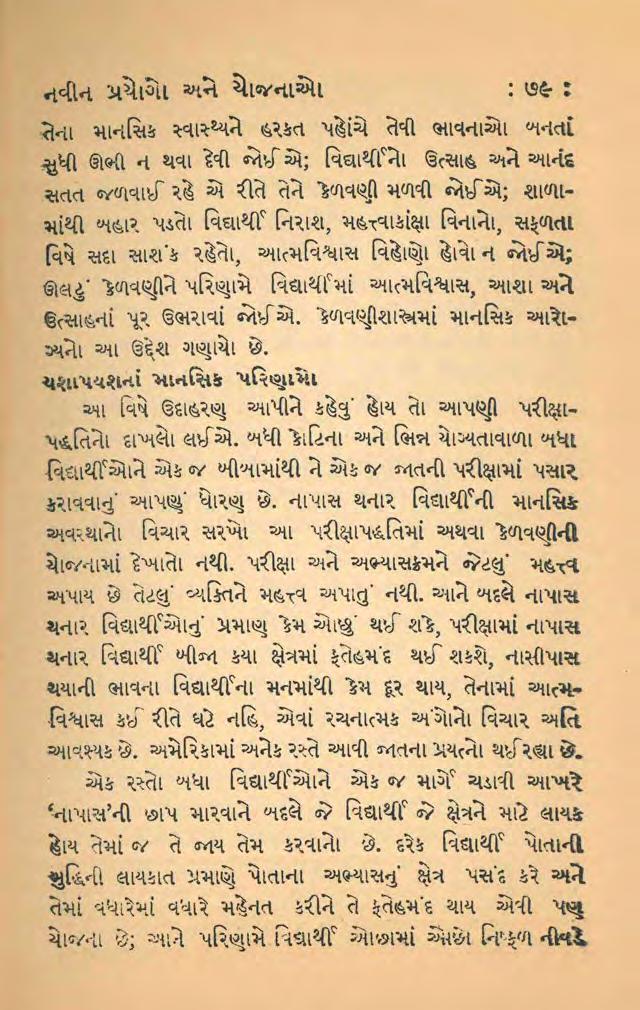 નવીન પ્રયોગો અને યોજનાઓ : ૭૯ :
તેના માનસિક સ્વાસ્થ્યને હરકત પહોંચે તેવી ભાવનાઓ બનતાં
સુધી ઊભી ન થવા દેવી જોઈએ; વિદ્યાર્થીનો ઉત્સાહ અને આનંદ
સતત જળવાઈ રહે એ રીતે તેને કેળવણી મળવી જોઈએ; શાળા-
માંથી બહાર પડતો વિદ્યાર્થી નિરાશ, મહત્ત્વાકાંક્ષા વિનાનો, સફળતા
વિષે સદા સાશંક રહેતો, આત્મવિશ્વાસ વિહોણો હોવો ન જોઈએ;
ઊલટું કેળવણીને પરિણામે વિદ્યાર્થીમાં આત્મવિશ્વાસ, આશા અને
ઉત્સાહનાં પૂર ઉભરાવાં જોઈએ. કેળવણીશાસ્ત્રમાં માનસિક આરો-
ગ્યનો આ ઉદ્દેશ ગણાયો છે.
યશાપયશનાં માનસિક પરિણામો
આ વિષે ઉદાહરણ આપીને કહેવું હોય તો આપણી પરીક્ષા-
પદ્ધતિનો દાખલો લઈએ. બધી કોટિના અને ભિન્ન યોગ્યતાવાળા બધા
વિદ્યાર્થીઓને એક જ બીબામાંથી ને એક જ જાતની પરીક્ષામાં પસાર
કરાવવાનું આપણું ધોરણ છે. નાપાસ થનાર વિદ્યાર્થીની માનસિક
અવસ્થાનો વિચાર સરખો આ પરીક્ષાપદ્ધતિમાં અથવા કેળવણીની
યોજનામાં દેખાતો નથી. પરીક્ષા અને અભ્યાસક્રમને જેટલું મહત્ત્વ
અપાય છે તેટલું વ્યક્તિને મહત્ત્વ અપાતું નથી. આને બદલે નાપાસ
થનાર વિદ્યાર્થીઓનું પ્રમાણ કેમ ઓછું થઈ શકે, પરીક્ષામાં નાપાસ
થનાર વિદ્યાર્થી બીજા કયા ક્ષેત્રમાં ફતેહમંદ થઈ શકશે, નાસીપાસ
થયાની ભાવના વિદ્યાર્થીના મનમાંથી કેમ દૂર થાય, તેનામાં આત્મ-
વિશ્વાસ કઈ રીતે ઘટે નહિ, એવાં રચનાત્મક અંગોનો વિચાર અતિ
આવશ્યક છે. અમેરિકામાં અનેક રસ્તે આવી જાતના પ્રયત્નો થઈ રહ્યા છે.
એક રસ્તો બધા વિદ્યાર્થીઓને એક જ માર્ગે ચડાવી આખરે
‘નાપાસ’ની છાપ મારવાને બદલે જે વિદ્યાર્થી જે ક્ષેત્રને માટે લાયક
હોય તેમાં જ તે જાય તેમ કરવાનો છે. દરેક વિદ્યાર્થી પોતાની
બુદ્ધિની લાયકાત પ્રમાણે પોતાના અભ્યાસનું ક્ષેત્ર પસંદ કરે અને
તેમાં વધારેમાં વધારે મહેનત કરીને તે ફતેહમંદ થાય એવી પણ
યોજના છે; આને પરિણામે વિદ્યાર્થી ઓછામાં ઓછો નિષ્ફળ નીવડે